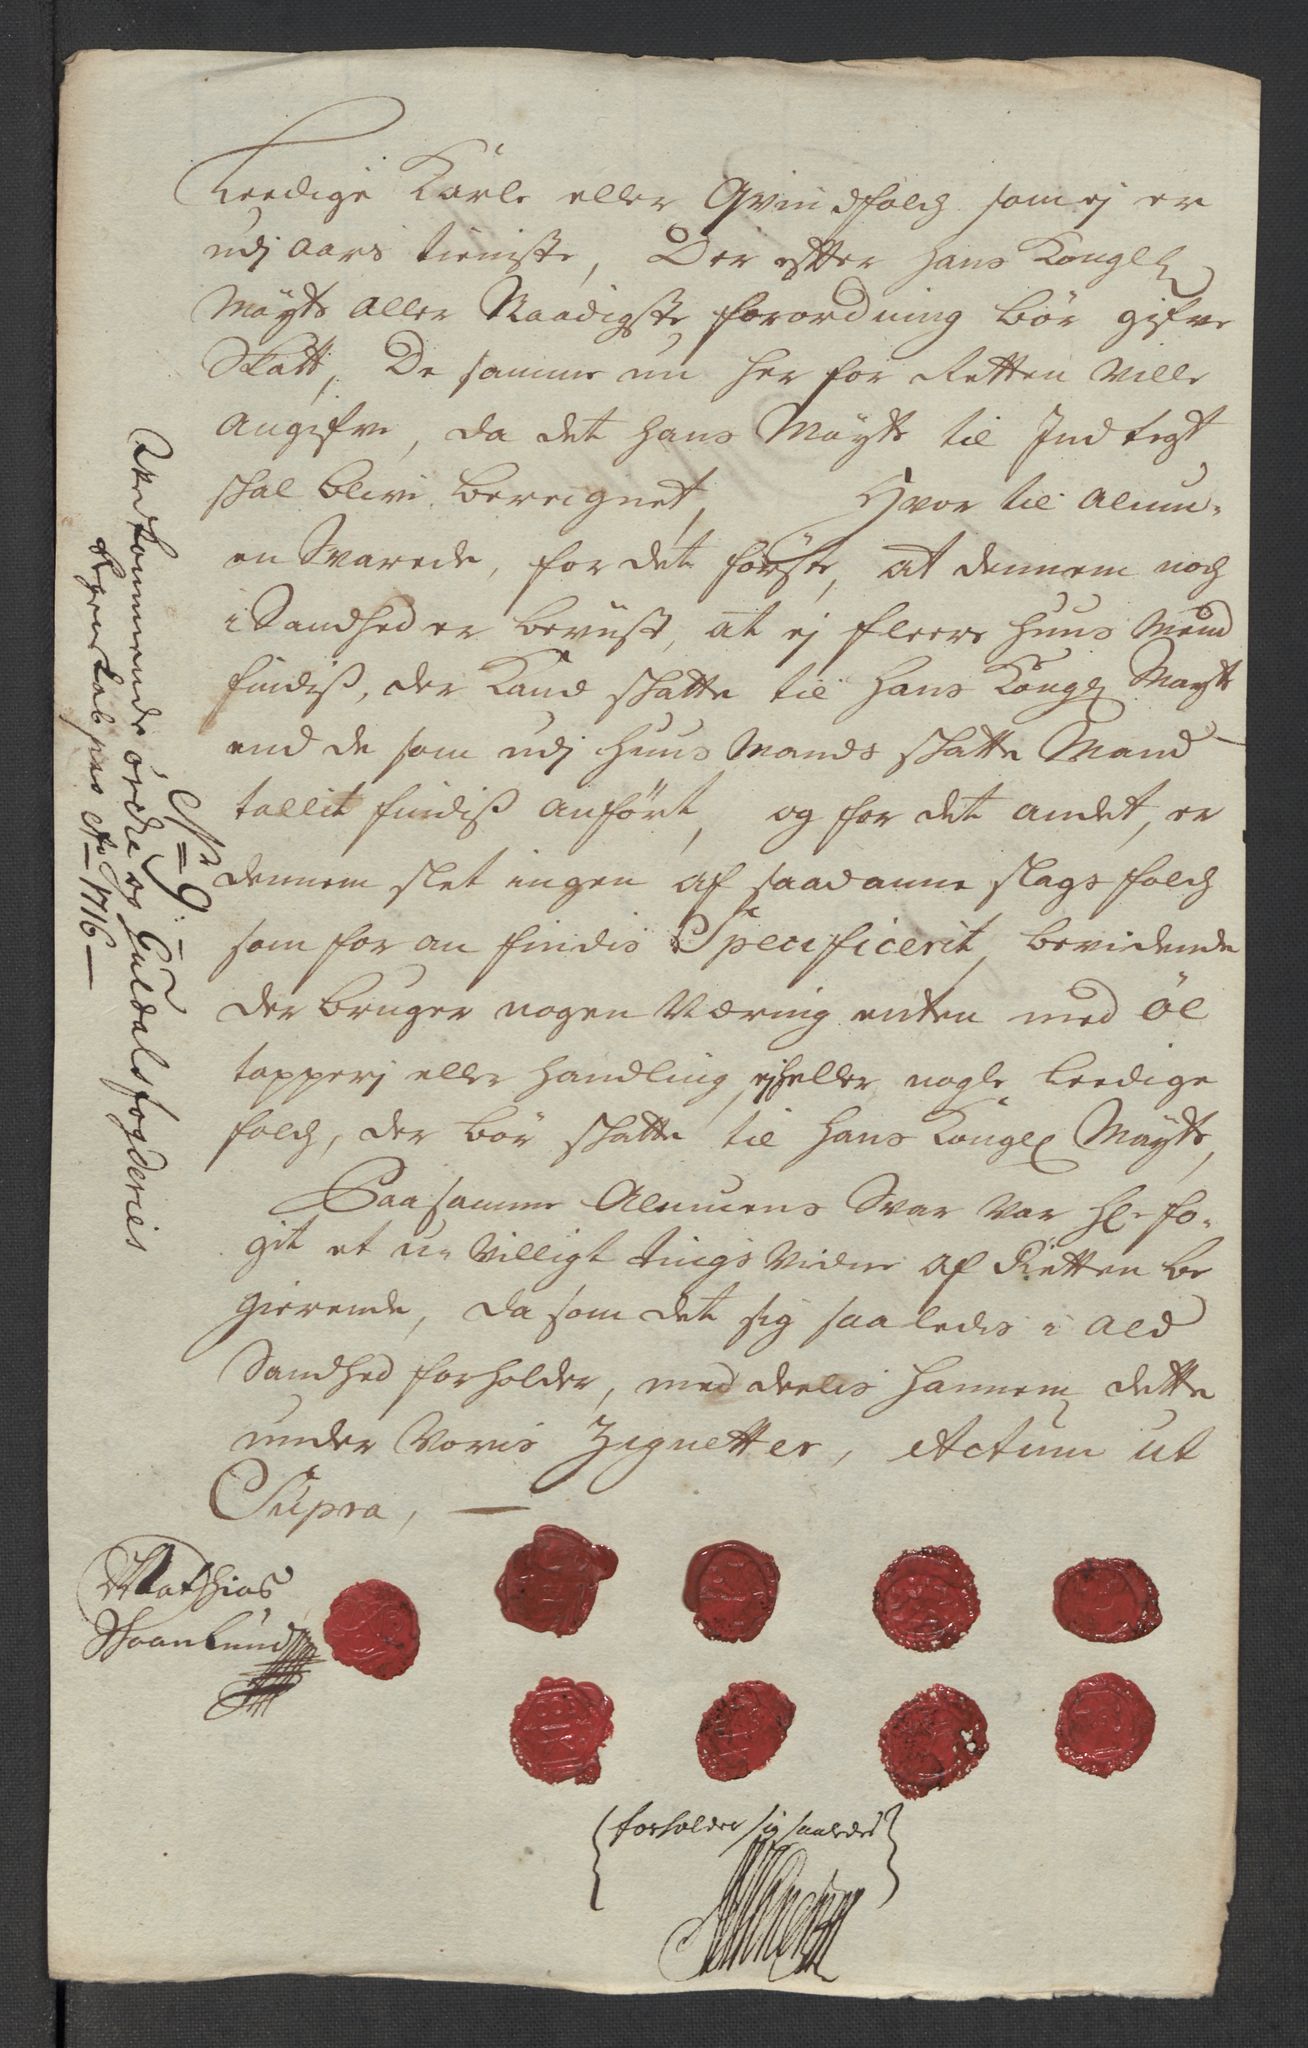 Leedige Karle eller Qvindfolch som ej er
udj aars tieniste, Der efter hans Kongl:
Mayts aller Naadigste forordning bör gifve
Skatt, De samme nu her for Retten ville
angifve, da det hans Mayts til Indtegt
skal blive bereignet, Hvor til almu-
en Svarede, for det förste, at dennem noch
i Sandhed er bevust, at ej fleere Huus Mænd
findiß, der kand skatte til hans Kongl: Mayts
end de som udj Huus Mands skatte Mand
tallit findiß anfört, og for det andet, er
dennem slet ingen af saadanne slags folch
som for an findis Specificerit, bevidende
der bruger nogen Næring enten med öl
tapperj eller handling, ejheller nogle Leedige
folch, der bör skatte til hans Kongl: Mayts,
Paa samme Almuens Svar var Hr: fo-
git et u-villigt tings vidne af Retten be
gierende, da som det sig saaledis i ald
Sandhed forholder, med deelis hannem dette
under voris Zignetter, Actum ut
Supra,
Mathias
Skaanlund
forholder sig saaledes
No 9
Vedkommende Orchedals og Guldals fogderies
Regenskab pro Ao 1716